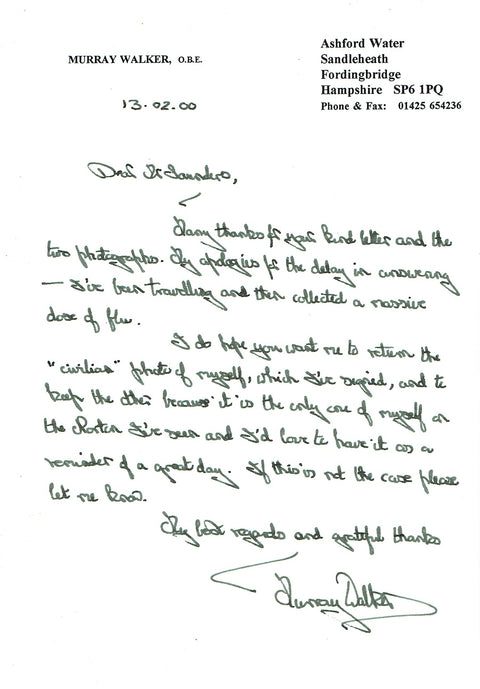 MURRAY WALKER, O.B.E.
Ashford Water
Sandleheath
Fordingbridge
Hampshire SP6 1PQ
Phone & Fax: 01425 654236
13.02.00
Dear Mr Saunders,
Many thanks for your kind letter and the
two photographs. My apologies for the delay in answering
— I've been travelling and then collected a massive
dose of flu.
I do hope you want me to return the
"civilian" photo of myself, which I've signed, and to
keep the other because it is the only one of myself on
the Norton I've seen and I'd love to have it as a
reminder of a great day. If this is not the case please
let me know.
My best regards and grateful thanks
Murray Walker